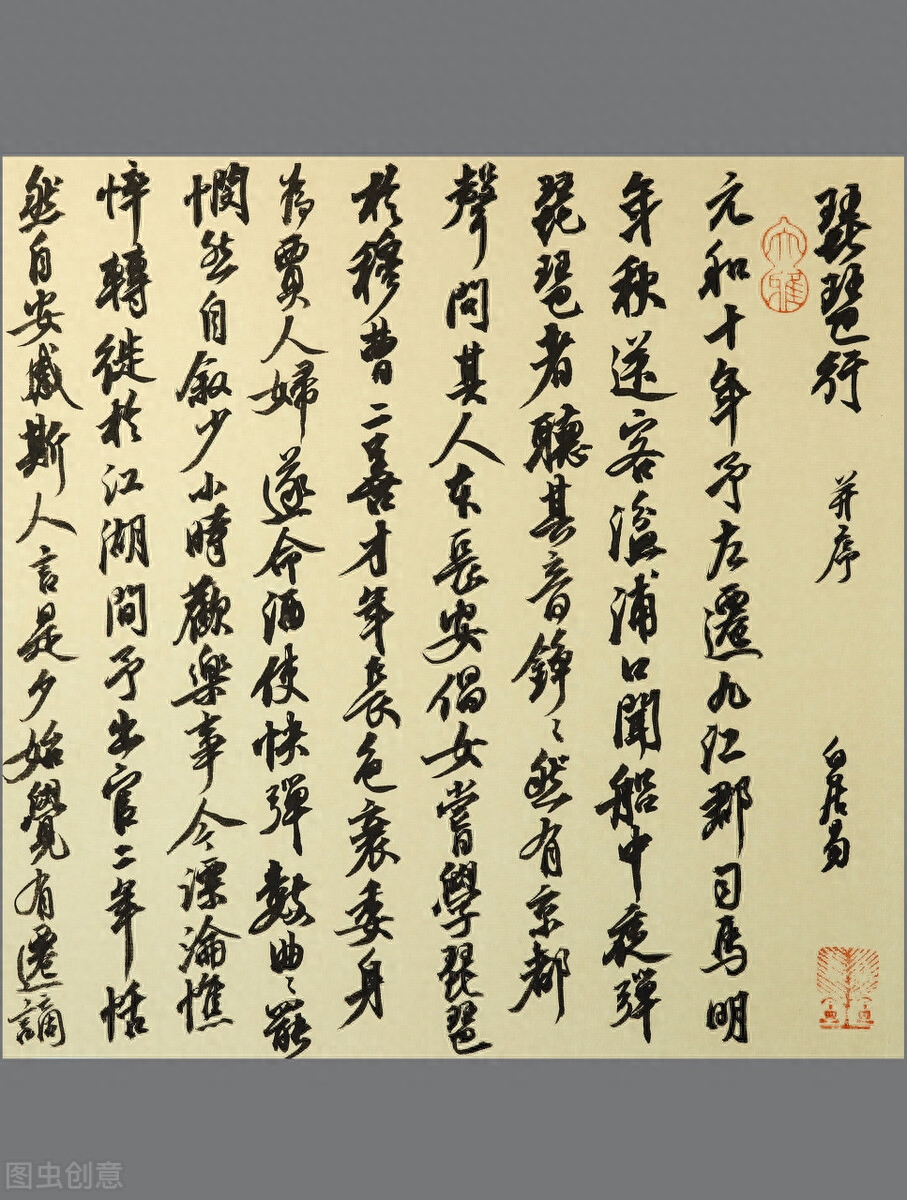 琵琶行 并序 白居易
元和十年予左遷九江郡司馬明
年秋送客湓浦口聞船中夜彈
琵琶者聽其音錚〻然有京都
聲問其人本長安倡女嘗學琵琶
於穆曹二善才年長色衰委身
為賈人婦遂命酒使快彈數曲〻罷
憫然自敘少小時歡樂事今漂淪憔
悴轉徙於江湖間予出官二年恬
然自安感斯人言是夕始覺有遷謫
大雅
图虫创意